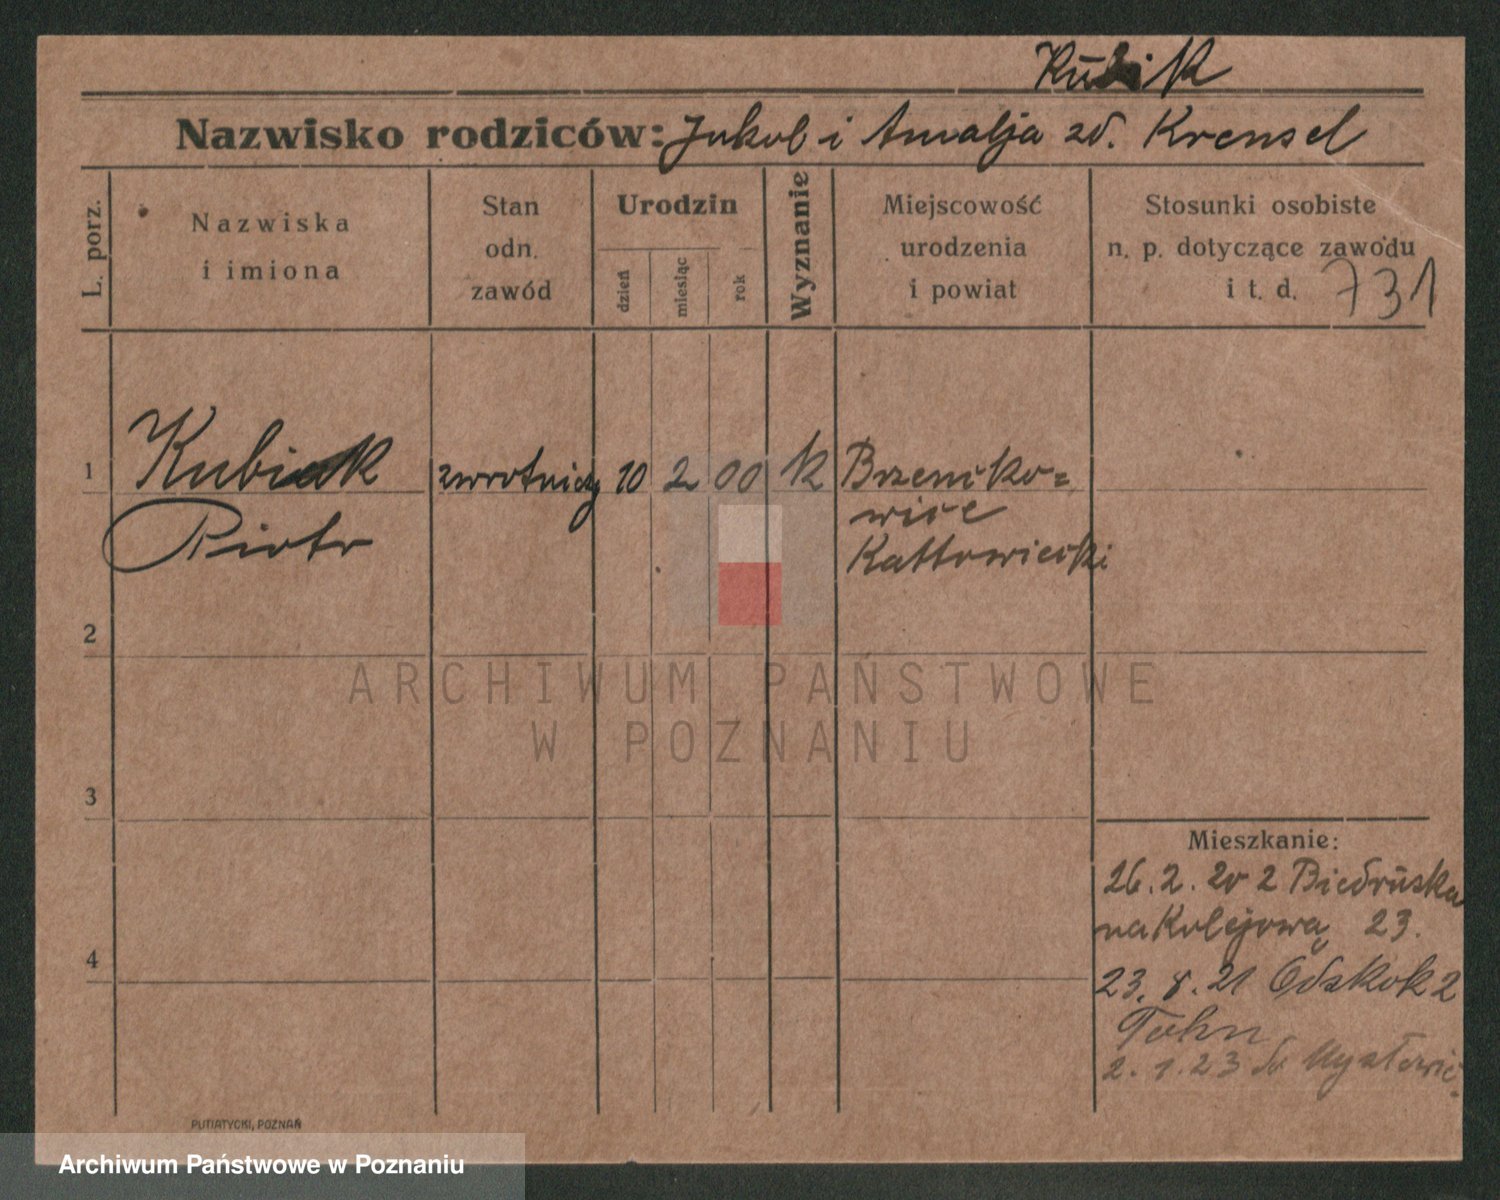 Kubik
Nazwisko rodziców: Jakob i Amalja zd. Krensel
L. porz.
Nazwiska
i imiona
Stan
odn.
zawód
Urodzin
dzień
miesiąc
rok
Wyznanie
Miejscowość
urodzenia
i powiat
Stosunki osobiste
n. p. dotyczące zawodu
i t. d. 731
1 Kubiak zwrotniczy 10 2 00 k Brzenško=
Piotr
wice
Kattowiecki
2
ARCHIWUM PAŃSTWOWE
W POZNANIU
3
Mieszkanie:
26. 2. 20 z Biedruska
na Kolejową 23.
4
23. 8. 21 Odskok 2
2. 1. 23 do Mysłowic
PUTIATYCKI, POZNAŃ
Archiwum Państwowe w Poznaniu